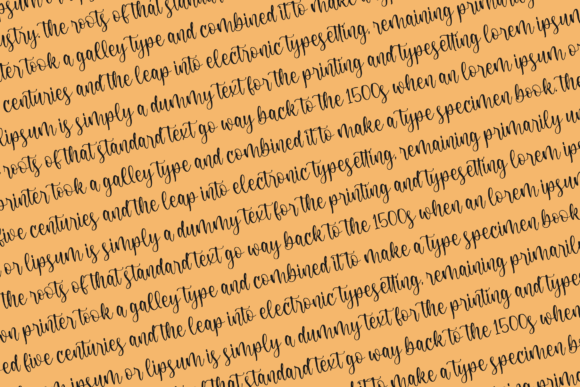 ustry. the roots of that standard
took a galley type and combined it to make a
centuries and the leap into electronic typesetting, remaining primarily
lipsum is simply a dummy text for the printing and typesetting lorem ipsum
roots of that standard text go way back to the 1500s when an lorem ipsum or
printer took a galley type and combined it to make a type specimen book. the
five centuries and the leap into electronic typesetting, remaining primarily un
or lipsum is simply a dummy text for the printing and typesetting lorem ips
the roots of that standard text go way back to the 1500s when an lorem ipsum
on printer took a galley type and combined it to make a type specimen book
ed five centuries and the leap into electronic typesetting, remaining primarily
ipsum or lipsum is simply a dummy text for the printing and types
that standard text go way back to the 1500s when
it to make a type specimen